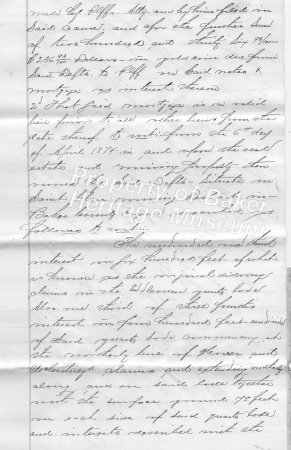 made by Plffs. Atty. and by him filed in
Said Cause, and also the further Sum
of Two hundred and thirty Six 99/100
$236 99/100 Dollars in gold coin due from
Said Defts. to Plff on Said notes &
mortgage as interest thereon
2d That said mortgage is a valid
lien prior to all other liens from the
date thereof to wit: from the 6th day
of April 187 in and upon the real
estate and mining property
Defts. situate in
Baker County
follows to wit:
The undivided one third
interest in Six hundred feet of what
is known as the original discovery
claims in the quartz lode
Also one third of three fourths
interest in four hundred feet undivided
of Said quartz lode commencing at
the northerly line of and
claims and extending northerly
along and on said lode together
with the surface ground 75 feet
on each side of said quartz lode
and interests described with the
Property of Baker
Heritage Museum